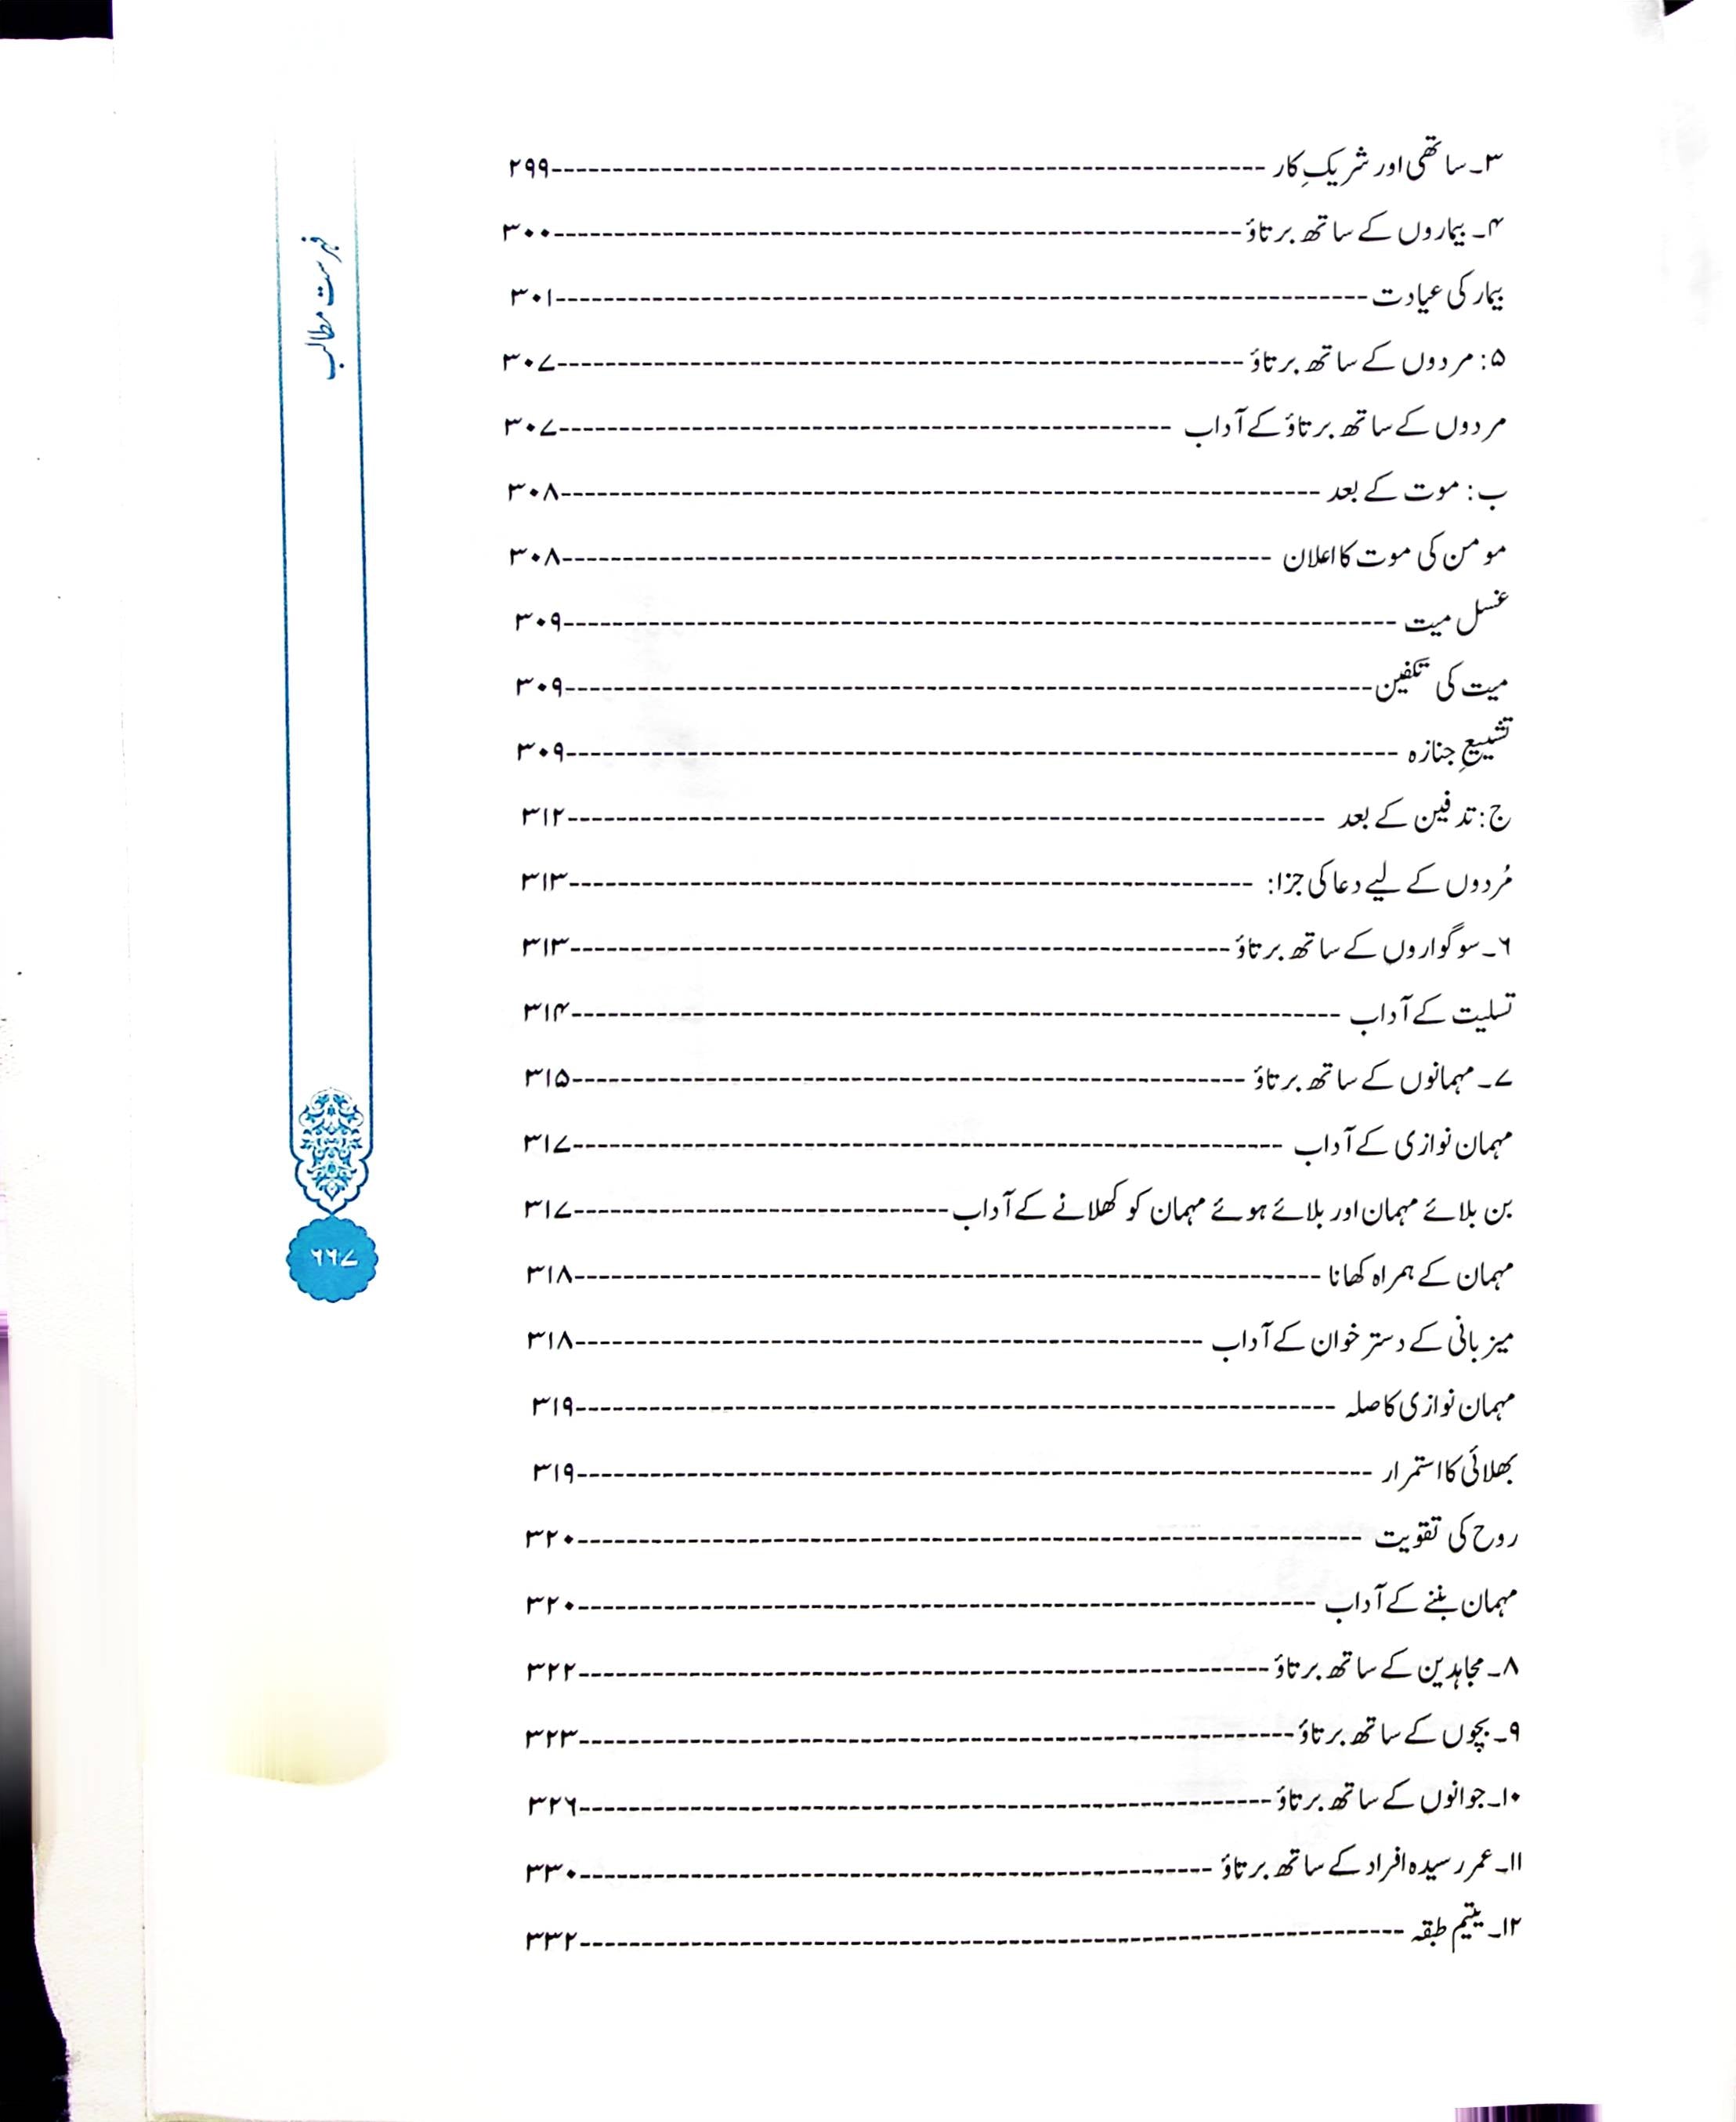 ۳۔ ساتھی اور شریکِ کار ----------------------------------------------------------۲۹۹
۴۔ بیماروں کے ساتھ برتاؤ--------------------------------------------------------۳۰۰
بیمار کی عیادت------------------------------------------------------------------۳۰۱
۵: مردوں کے ساتھ برتاؤ--------------------------------------------------------۳۰۷
مردوں کے ساتھ برتاؤ کے آداب --------------------------------------------------۳۰۷
ب: موت کے بعد --------------------------------------------------------------۳۰۸
مومن کی موت کا اعلان ----------------------------------------------------------۳۰۸
غسل میت --------------------------------------------------------------------۳۰۹
میت کی تکفین------------------------------------------------------------------۳۰۹
تشییعِ جنازہ --------------------------------------------------------------------۳۰۹
ج: تدفین کے بعد --------------------------------------------------------------۳۱۲
مُردوں کے لیے دعا کی جزا: --------------------------------------------------------۳۱۳
۶۔ سوگواروں کے ساتھ برتاؤ------------------------------------------------------۳۱۳
تسلیت کے آداب --------------------------------------------------------------۳۱۴
۷۔ مہمانوں کے ساتھ برتاؤ ------------------------------------------------------۳۱۵
مہمان نوازی کے آداب ----------------------------------------------------------۳۱۷
بن بلائے مہمان اور بلائے ہوئے مہمان کو کھلانے کے آداب------------------------------۳۱۷
مہمان کے ہمراہ کھانا ------------------------------------------------------------۳۱۸
میزبانی کے دسترخوان کے آداب --------------------------------------------------۳۱۸
مہمان نوازی کا صلہ --------------------------------------------------------------۳۱۹
بھلائی کا استمرار ----------------------------------------------------------------۳۱۹
روح کی تقویت ----------------------------------------------------------------۳۲۰
مہمان بننے کے آداب ------------------------------------------------------------۳۲۰
۸۔ مجاہدین کے ساتھ برتاؤ--------------------------------------------------------۳۲۲
۹۔ بچوں کے ساتھ برتاؤ----------------------------------------------------------۳۲۳
۱۰۔ جوانوں کے ساتھ برتاؤ--------------------------------------------------------۳۲۶
۱۱۔ عمر رسیدہ افراد کے ساتھ برتاؤ --------------------------------------------------۳۳۰
۱۲۔ یتیم طبقہ ------------------------------------------------------------------۳۳۲
فہرست مطالب
۶۶۷